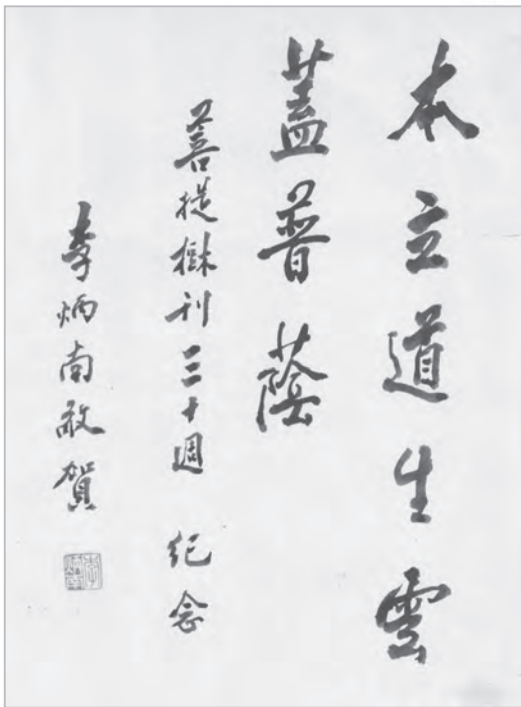 本立道生雲
蓋普蔭
菩提樹刊三十週 紀念
李炳南敬賀